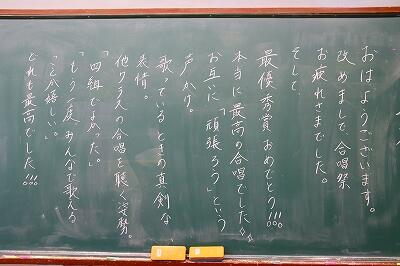 おはようございます。
改めまして、合唱祭
お疲れさまでした。
そして、
最優秀賞おめでとう!!!
本当に最高の合唱でした☆
お互いに「頑張ろう」という
声かけ。
歌っているときの真剣な
表情。
他クラスの合唱を聴く姿勢。
「四組でよかった。」
「もう一度みんなで歌える
ことが嬉しい。」
どれも最高でした!!!